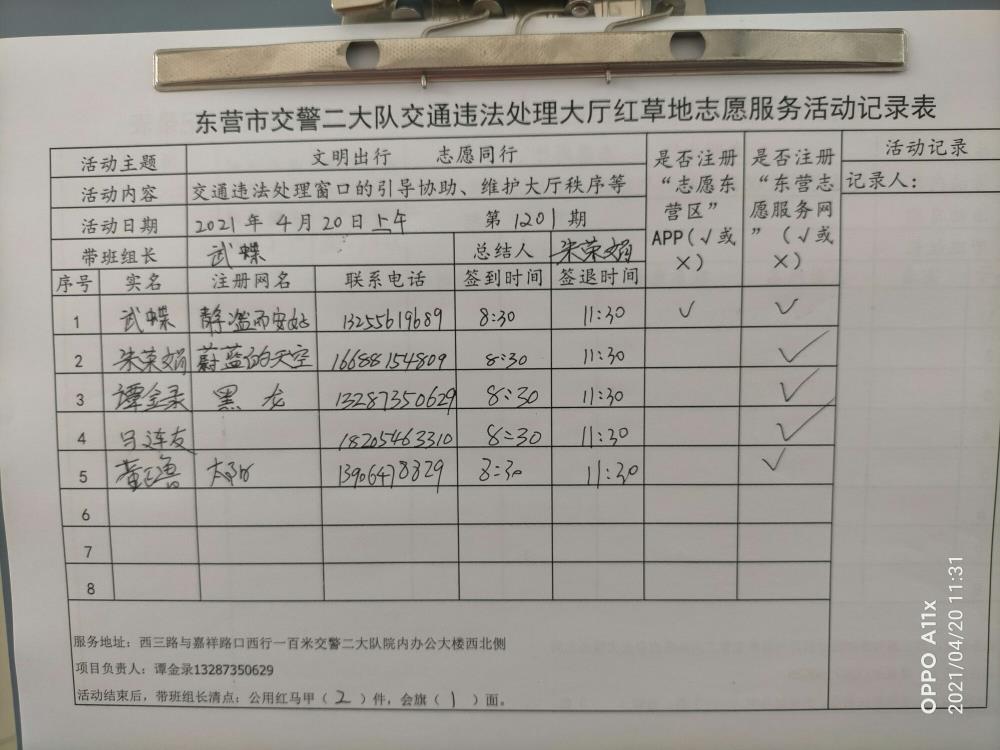 东营市交警二大队交通违法处理大厅红草地志愿服务活动记录表
活动主题 文明出行 志愿同行 是否注册“志愿东营区”APP(√或×) 是否注册“东营志愿服务网”(√或×) 活动记录
活动内容 交通违法处理窗口的引导协助、维护大厅秩序等 记录人:
活动日期 2021年4月20日上午 第1201期
带班组长 武蝶 总结人 朱荣娟
序号 实名 注册网名 联系电话 签到时间 签退时间
1 武蝶 静 而安好 13255619689 8:30 11:30 √ √
2 朱荣娟 蔚蓝的天空 16688154809 8:30 11:30 √
3 谭金录 黑龙 13287350629 8:30 11:30 √
4 连友 18205463310 8:30 11:30 √
5 董 太阳 13906478829 8:30 11:30 √
6
7
8
服务地址：西三路与嘉祥路口西行一百米交警二大队院内办公大楼西北侧
项目负责人：谭金录13287350629
活动结束后，带班组长清点：公用红马甲（2）件，会旗（1）面。
OPPO A11x
2021/04/20 11:31